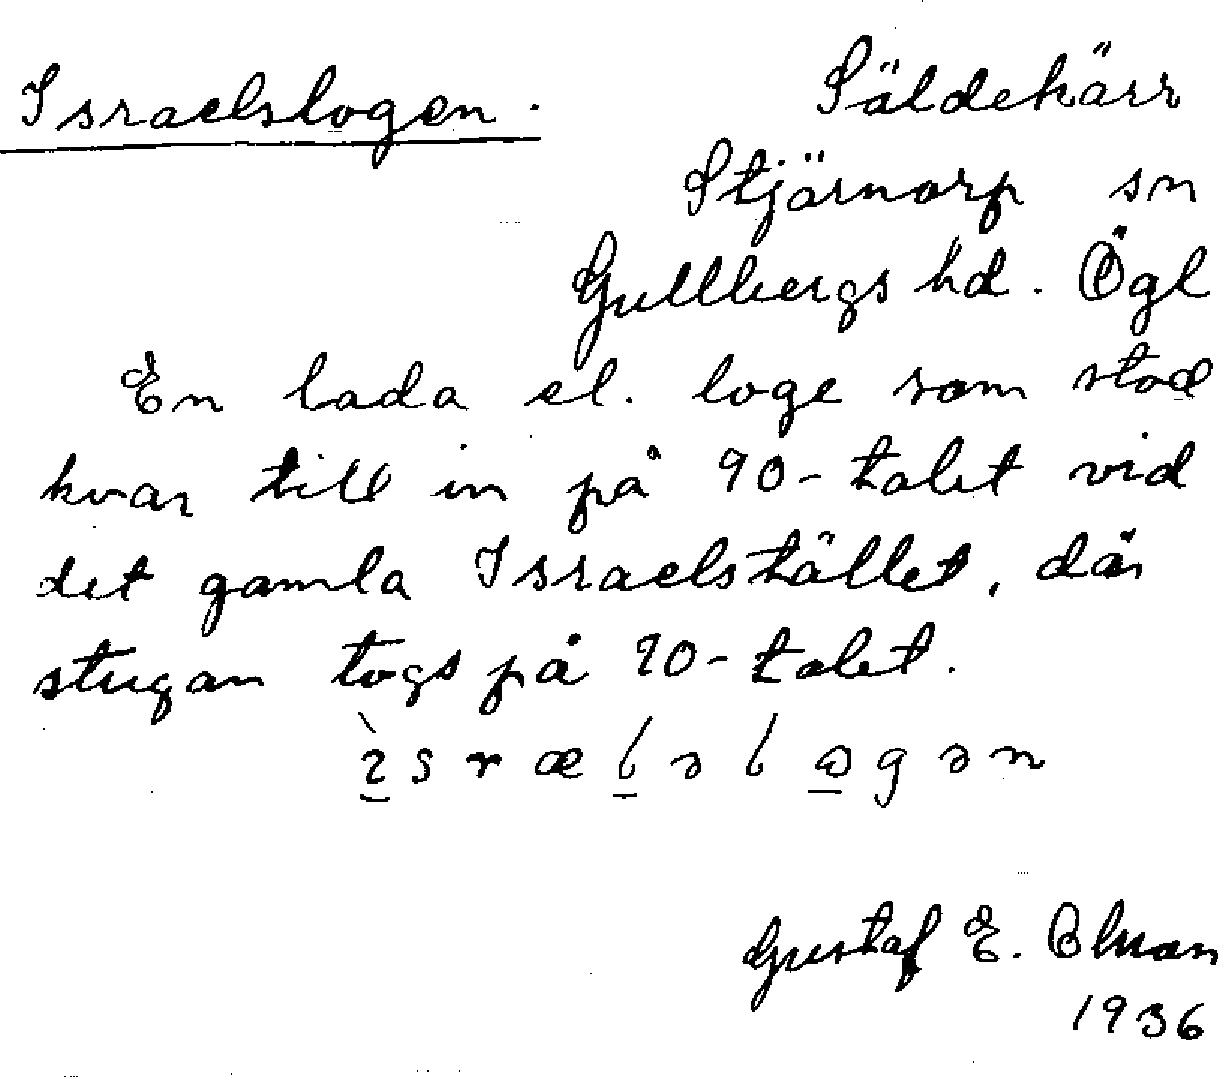 Israelslogen.
Säldekärr
Stjärnorp sn
Gullbergs hd. Ögl
En lada el. loge som stod
kvar till in på 90-talet vid
det gamla Israelstället, där
stugan togs på 90-talet.
Gustaf E.
1936